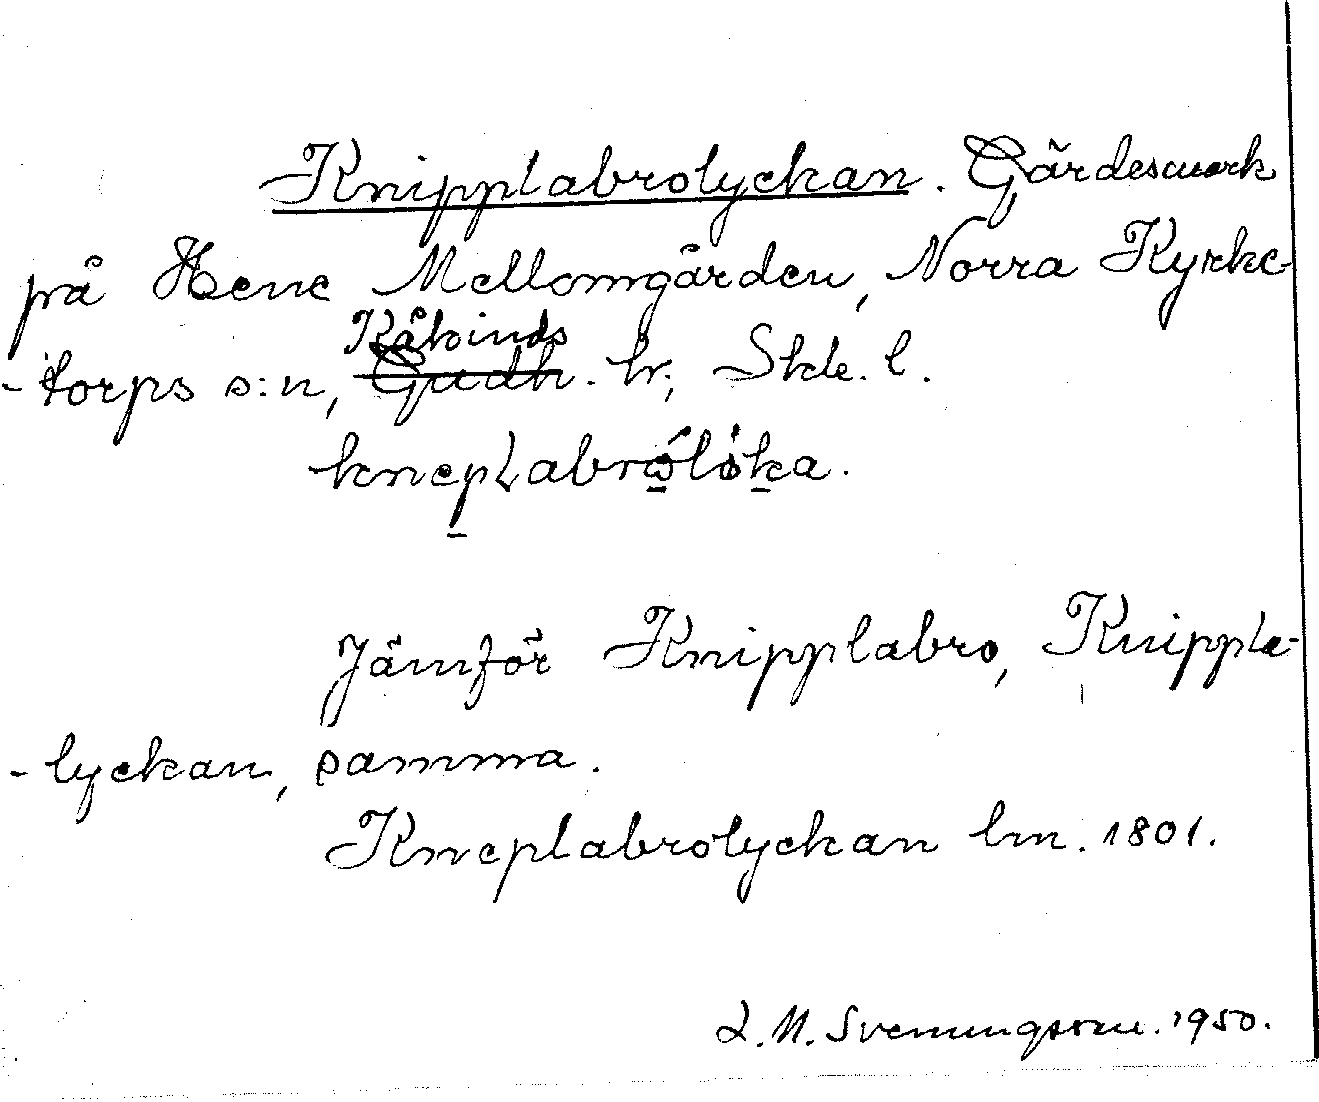 Knipplabrolyckan. Gärdesmark
på Hene Mellomgården, Norra Kyrke-
-torps s:n, Kåkinds Gudh. hr, Skbg. l.
kneplabrólöka.
Jämför Knipplabro, Knippla-
-lyckan, samma.
Kneplabrolyckan lm. 1801.
L. M. Svenungsson. 1950.